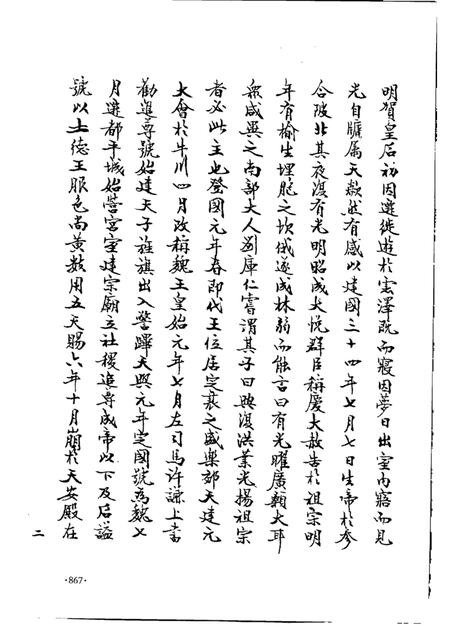 明賀皇后初因遷徙遊於雲澤既而寢因夢日出室內寤而見
光自牖属天歘然有感以建國三十四年七月七日生帝於參
合陂北其夜復有光明昭成大悅群臣稱慶大赦告於祖宗明
年有榆生埋胞之坎俄遂成林弱而能言曰有光曜廣顙大耳
衆咸異之南部大人劉庫仁嘗謂其子曰興復洪業光揚祖宗
者必此主也登國元年春即代王位居定襄之盛樂郊天建元
大會於牛川四月改稱魏王皇始元年七月左司馬許謙上書
勸進尊號始建天子旌旗出入警蹕天興元年定國號為魏七
月遷都平城始營宮室建宗廟立社稷追尊成帝以下及后謚
號以土德王服色尚黃數用五天賜六年十月崩於天安殿在
二
·867·